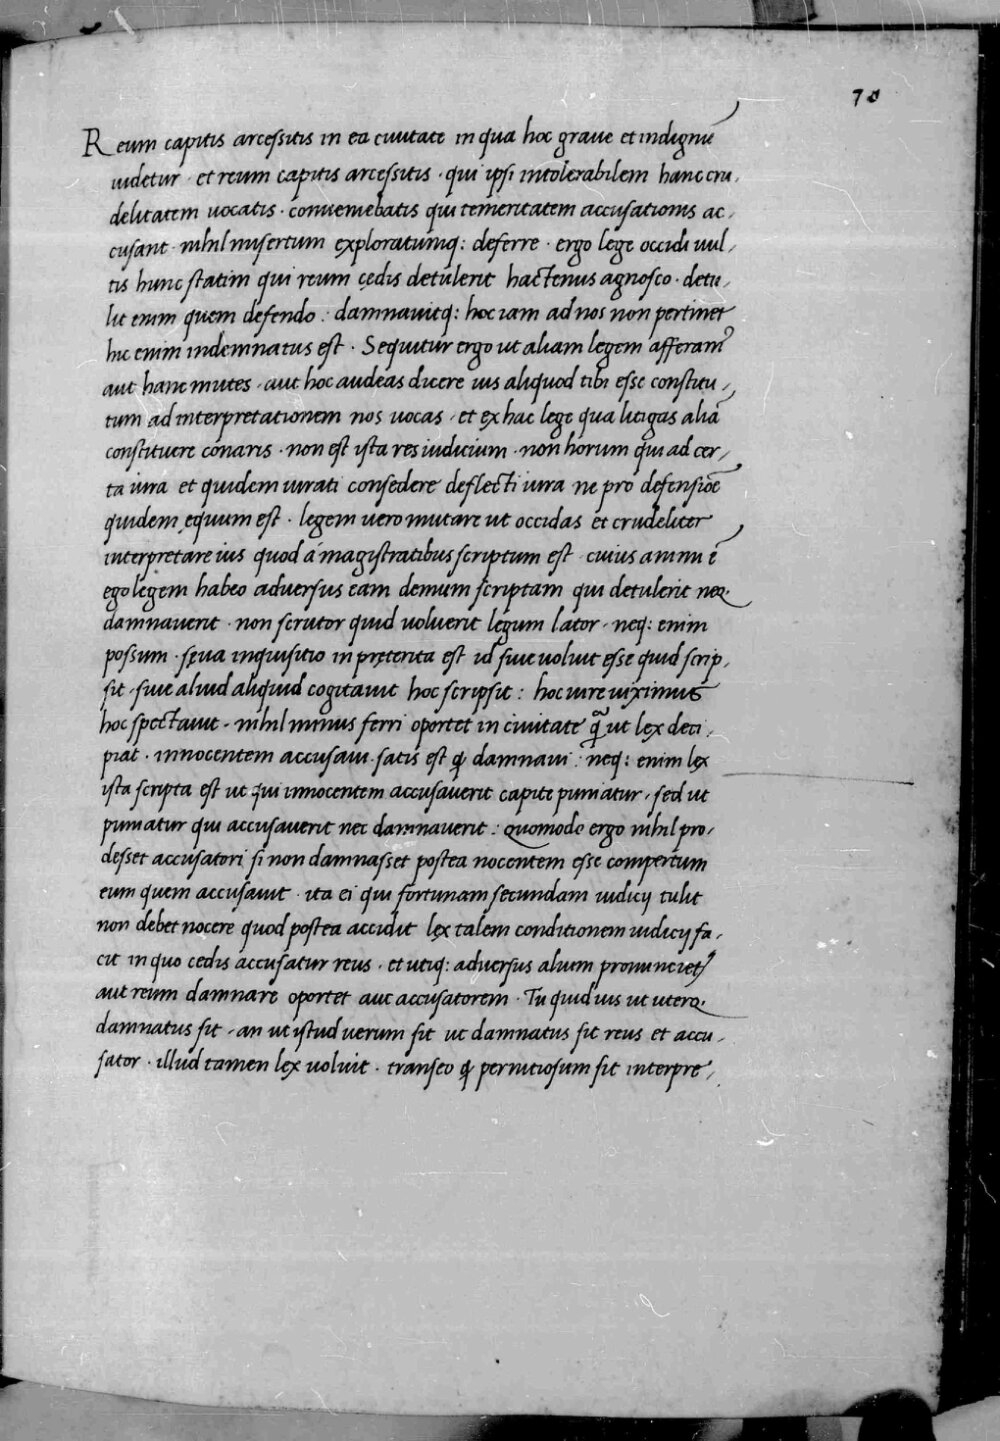 70
Reum capitis arcessitis in ea ciuitate in qua hoc graue et indignũ
uidetur · et reum capitis arcessitis · qui ipsi intolerabilem hanc cru,
delitatem uocatis · conueniebatis qui temeritatem accusationis ac,
cusant · nihil nisi certum exploratumq: deferre · ergo lege occidi uul,
tis hunc statim qui reum cędis detulerit hactenus agnosco · detu,
lit enim quem defendo : damnauitq: hoc iam ad nos non pertinet
hic enim indemnatus est · Sequitur ergo ut aliam legem afferam
aut hanc mutes · aut hoc audeas dicere ius aliquod tibi esse constitu,
tum ad interpretationem nos uocas · et ex hac lege qua litigas aliã
constituere conaris · non est ista res iudicium · non horum qui ad cer,
ta iura et quidem iurati consedere deflecti iura ne pro defensiõe
quidem ęquum est · legem uero mutare ut occidas et crudeliter
interpretare ius quod á magistratibus scriptum est · cuius
ego legem habeo adversus eam demum scriptam qui detulerit neq.
damnauerit · non scrutor quid uoluerit legum lator · neq: enim
possum · sęua inquisitio in pręterita est id siue uoluit esse quid scrip,
sit · siue aliud aliquid cogitauit hoc scripsit : hoc iure uiximus
hoc spectauit · nihil minus ferri oportet in ciuitate q̃ ut lex deci,
piat · innocentem accusaui · satis est ꝙ damnaui : neq: enim lex
ista scripta est ut qui innocentem accusauerit capite puniatur · sed ut
puniatur qui accusauerit nec damnauerit : Quomodo ergo nihil pro,
desset accusatori si non damnasset postea nocentem esse compertum
eum quem accusauit · ita ei qui fortunam secundam iudicij tulit
non debet nocere quod postea accidit lex talem conditionem iudicij fa,
cit in quo cedis accusatur reus · et utiq: adversus alium pronuncietʳ
aut reum damnare oportet aut accusatorem · Tu quid uis ut uterq.
damnatus sit · an ut istud uerum sit ut damnatus sit reus et accu,
sator · illud tamen lex uoluit · transeo ꝙ pernitiosum sit interpre,